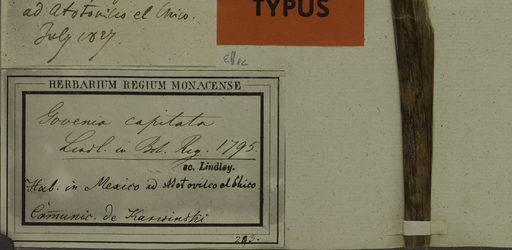 ad Atotovilco el Chico.
July 1827.
TYPUS
HERBARIUM REGIUM MONACENSE
Govenia capitata
Lindl. in Bot. Reg. 1795
sc. Lindley.
Hab. in Mexico ad Atotovilco el Chico
Comunic. de Karwinski
203.